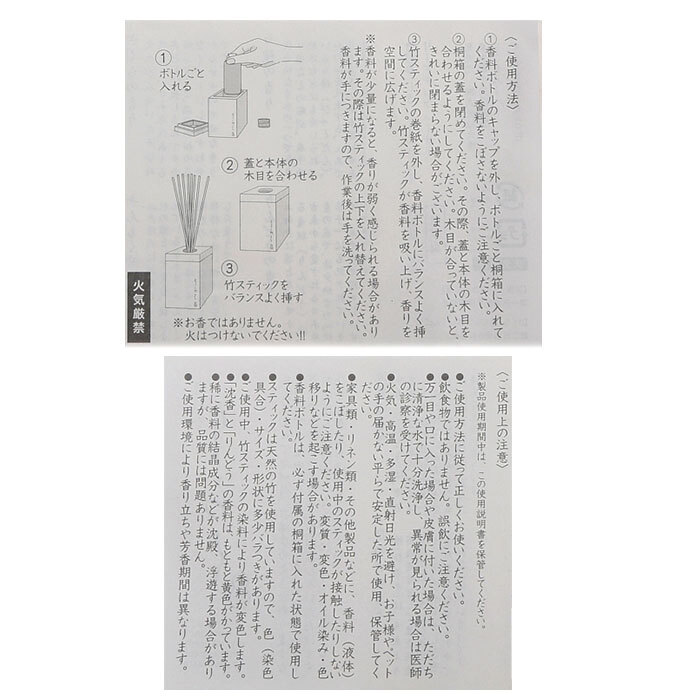 〈ご使用方法〉
①香料ボトルのキャップを外し、ボトルごと桐箱に入れて
ください。香料をこぼさないようにご注意ください。
②桐箱の蓋を閉めてください。その際、蓋と本体の木目を
合わせるようにしてください。木目が合っていないと、
きれいに閉まらない場合がございます。
③竹スティックの巻紙を外し、香料ボトルにバランスよく挿
してください。竹スティックが香料を吸い上げ、香りを
空間に広げます。
※香料が少量になると、香りが弱く感じられる場合があり
ます。その際は竹スティックの上下を入れ替えてください。
香料が手につきますので、作業後は手を洗ってください。
①
ボトルごと
入れる
②
蓋と本体の
木目を合わせる
③
竹スティックを
バランスよく挿す
※お香ではありません。
火はつけないでください!!
火気厳禁
〈ご使用上の注意〉
※製品使用期間中は、この使用説明書を保管してください。
●ご使用方法に従って正しくお使いください。
●飲食物ではありません。誤飲にご注意ください。
●万一目や口に入った場合や皮膚に付いた場合は、ただち
に清浄な水で十分洗浄し、異常が見られる場合は医師
の診察を受けてください。
●火気・高温・多湿・直射日光を避け、お子様やペット
の手の届かない平らで安定した所で使用、保管してく
ださい。
●家具類・リネン類・その他製品などに、香料(液体)
をこぼしたり、使用中のスティックが接触したりしない
ようにご注意ください。変質・変色・オイル染み・色
移りなどを起こす場合があります。
●香料ボトルは、必ず付属の桐箱に入れた状態で使用し
てください。
●スティックは天然の竹を使用していますので、色(染色
具合)・サイズ・形状に多少バラつきがあります。
●ご使用中、竹スティックの染料により香料が変色します。
●「沈香」と「りんどう」の香料は、もともと黄色がかっています。
●稀に香料の結晶成分などが沈殿、浮遊する場合があり
ますが、品質には問題ありません。
●ご使用環境により香り立ちや芳香期間は異なります。